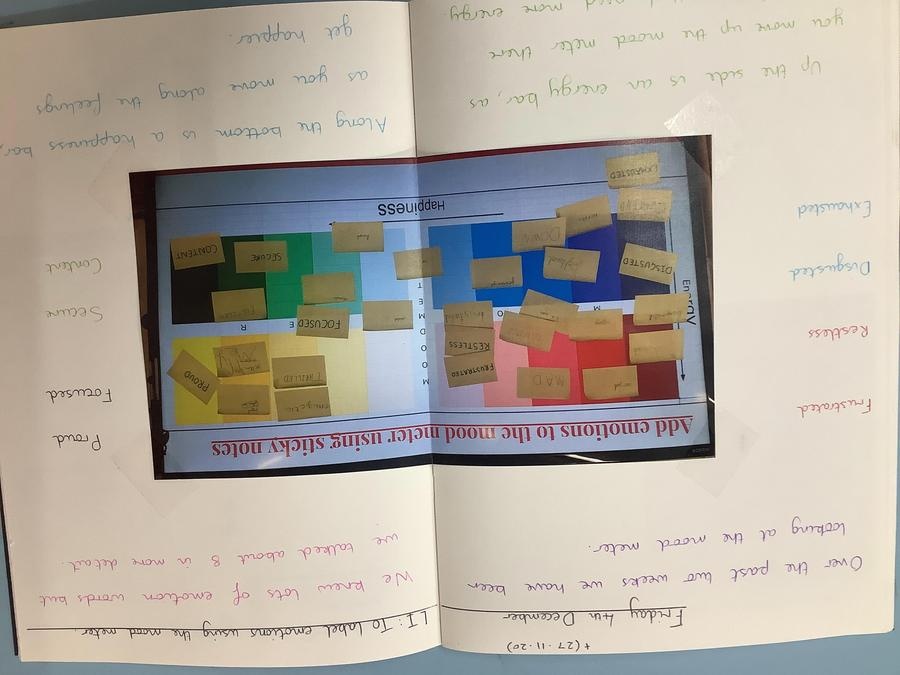 + (27.11.20)
Friday 4th December
Over the past two weeks we have been
looking at the mood meter.
LI: To label emotions using the mood meter.
We knew lots of emotion words but
we talked about 8 in more detail.
Add emotions to the mood meter using sticky notes
Energy
Happiness
MOOD METER
MAD
FRUSTRATED
RESTLESS
DISGUSTED
DOWN
EXHAUSTED
energetic
THRILLED
PROUD
FOCUSED
SECURE
CONTENT
Frustrated
Restless
Disgusted
Exhausted
Proud
Focused
Secure
Content
Up the side is an energy bar, as
you move up the mood meter there
need more energy.
Along the bottom is a happiness bar,
as you move along the feelings
get happier.